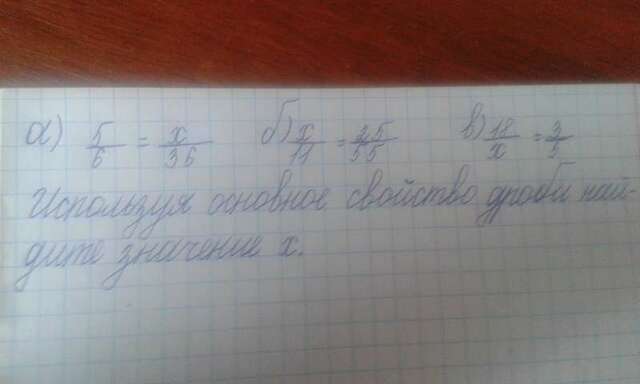 а) 5/6 = x/36 б) x/11 = 25/55 в) 18/x = 2/7
Используя основное свойство дроби най-
дите значение x.